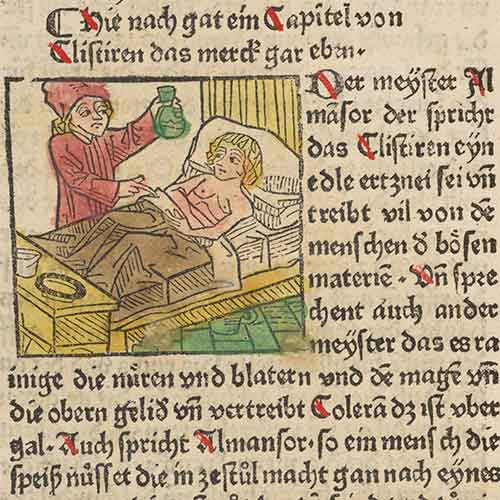 Hie nach gat ein Capitel von
Clistiren das merck gar eben.
Der meÿster Al
mãsor der spricht
das Clistiren eyn
edle ertznei sei vñ
treibt vil von dẽ
menschen d̾ bôsen
materiẽ. Vñ spre
chent auch ander
meÿster das es ra
inige die nůren vnd blatern vnd dẽ magẽ vñ
die obern gelid̾ vñ vertreibt Colerã dz ist vber
gal. Auch spricht Almansor. so ein mensch die
speiß nůsset die in zestůl macht gan nach eynes